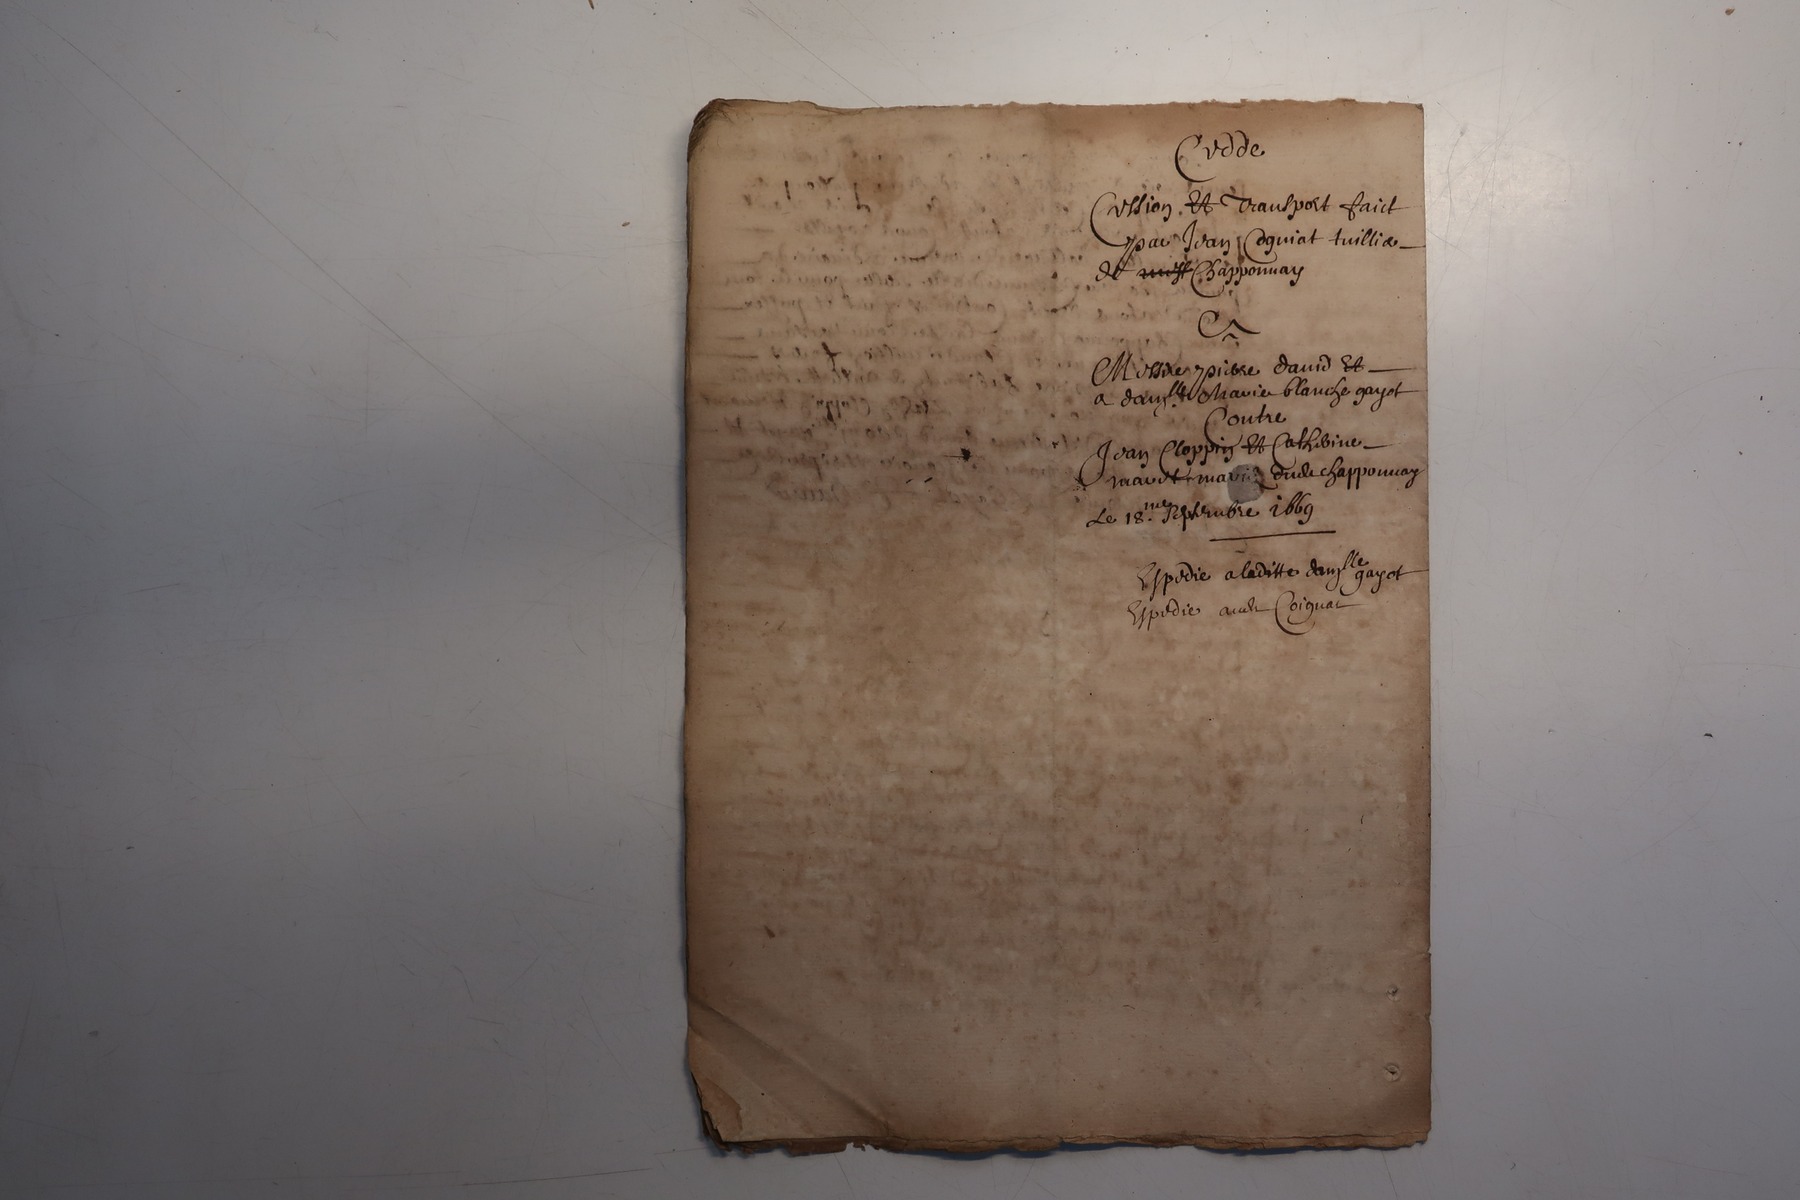 Cedde
Cession Et Transport faict
par Jean Cogniat tuillier
de Chapponnay
A
Messire pierre david Et
a dam.lle Marie blanche gayot
Contre
Jean Cloppin Et Catherine
mariés dude chapponnay
Le 18.me septembre 1669
Espedie a laditte dam.lle gayot
Espedie aude Coignat